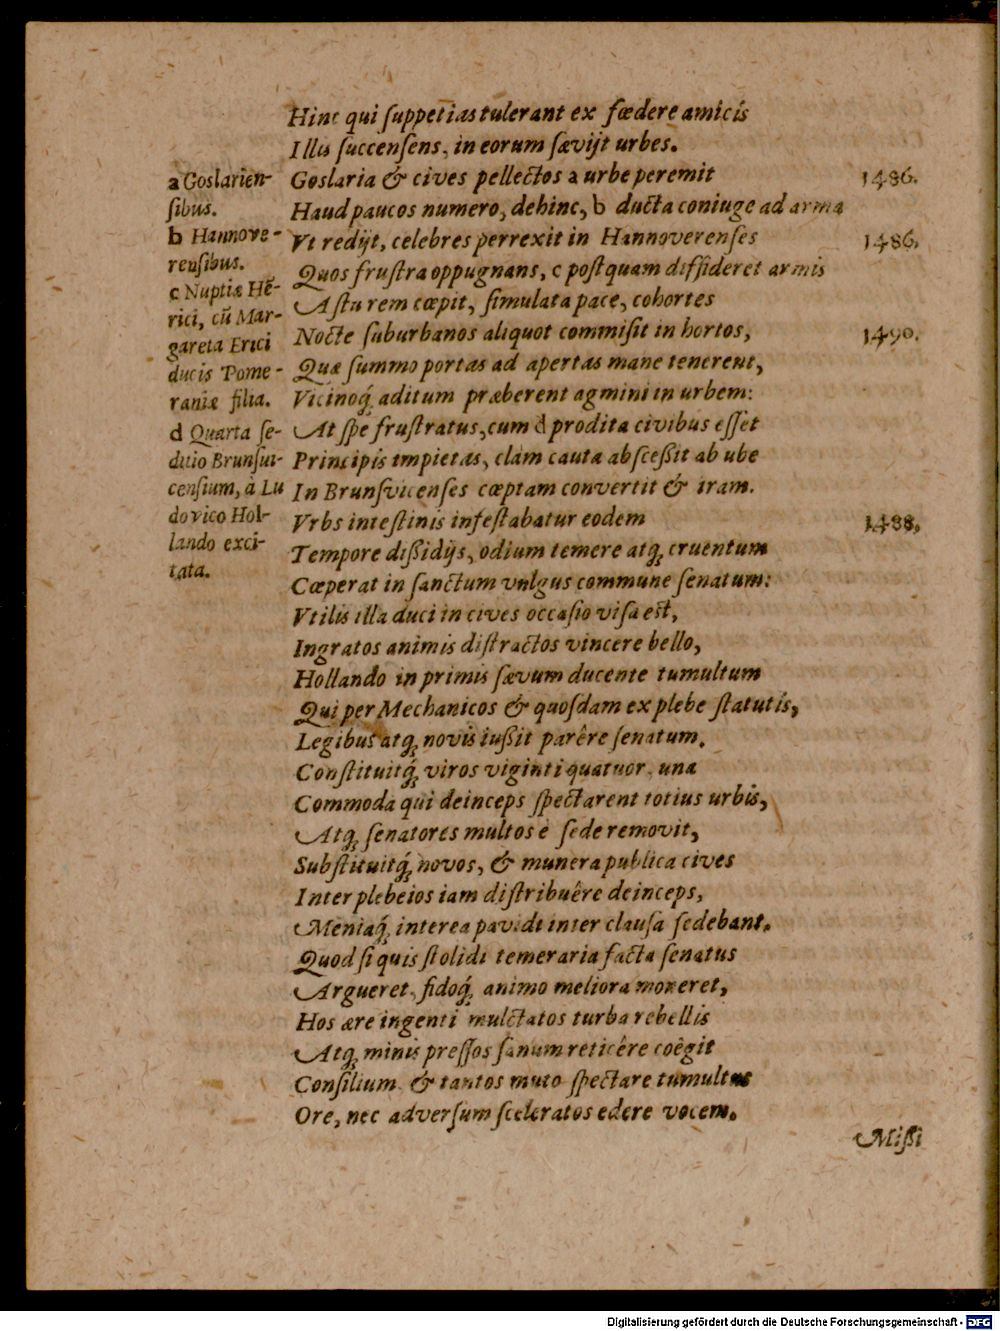 Hinc qui ſuppetias tulerant ex fœdere amicis
Illis ſuccenſens, in eorum ſævijt urbes.
Goslaria & cives pellectos a urbe peremit
Haud paucos numero, dehinc, b ducta coniuge ad arma
Vt redijt, celebres perrexit in Hannoverenſes
Quos fruſtra oppugnans, c poſtquam diffideret armis
Aſtu rem cœpit, ſimulata pace, cohortes
Nocte ſuburbanos aliquot commiſit in hortos,
Quæ ſummo portas ad apertas mane tenerent,
Vicinoq́; aditum præberent agmini in urbem:
At ſpe fruſtratus, cum d prodita civibus eſſet
Principis impietas, clàm cauta abſceßit ab ube
In Brunſvicenſes cœptam convertit & iram.
Vrbs inteſtinis infeſtabatur eodem
Tempore dißidijs, odium temere atq; cruentum
Cœperat in ſanctum vulgus commune ſenatum:
Vtilis illa duci in cives occaſio viſa eſt,
Ingratos animis diſtractos vincere bello,
Hollando in primis ſævum ducente tumultum
Qui per Mechanicos & quoſdam ex plebe ſtatutis,
Legibus atq; novis iußit parêre ſenatum.
Conſtituitq́; viros viginti quatuor, una
Commoda qui deinceps ſpectarent totius urbis,
Atq; ſenatores multos è ſede removit,
Subſtituitq́; novos, & munera publica cives
Inter plebeios iam diſtribuêre deinceps,
Meniaq́; interea pavidi inter clauſa ſedebant.
Quod ſi quis ſtolidi temeraria facta ſenatus
Argueret, fidoq́; animo meliora moneret,
Hos ære ingenti mulctatos turba rebellis
Atq; minis preſſos ſanum reticêre coêgit
Conſilium & tantos muto ſpectare tumultus
Ore, nec adverſum ſceleratos edere vocem.
Mißi
a Goslarien-
ſibus.
b Hannove-
renſibus.
c Nuptiæ Hē-
rici, cū Mar-
gareta Erici
ducis Pome-
raniæ filia.
d Quarta ſe-
ditio Brunſui-
cenſium, à Lu
dovico Hol-
lando exci-
tata.
1486.
1486.
1490.
1488.
Digitalisierung gefördert durch die Deutsche Forschungsgemeinschaft - DFG